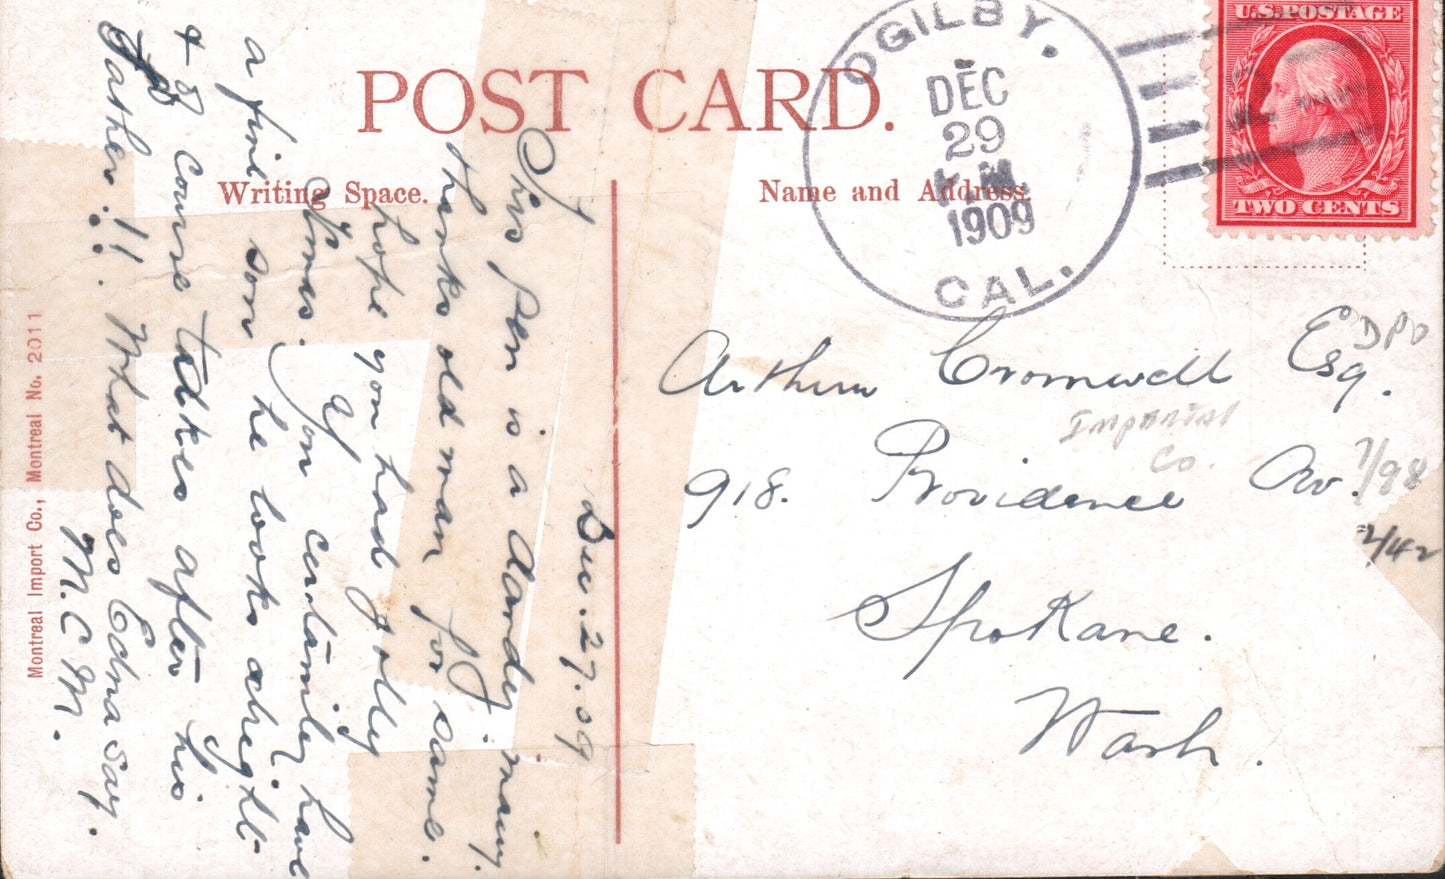 POST CARD.
Writing Space.
Name and Address.
OGILBY.
DEC
29
1909
CAL.
U.S. POSTAGE
TWO CENTS
Dec. 27. 09
This pen is a dandy. many.
thanks old man for same.
I hope you had a Jolly
Xmas. You certainley have
a fine son he looks alright
& of course takes after his
Father.!! What does Edna say.
M.C.M.
Arthur Cromwell Esq.
918. Providence Av.
Spokane.
Wash.
DPO
Imperial
Co.
7/98
2/42
Montreal Import Co., Montreal No. 2011